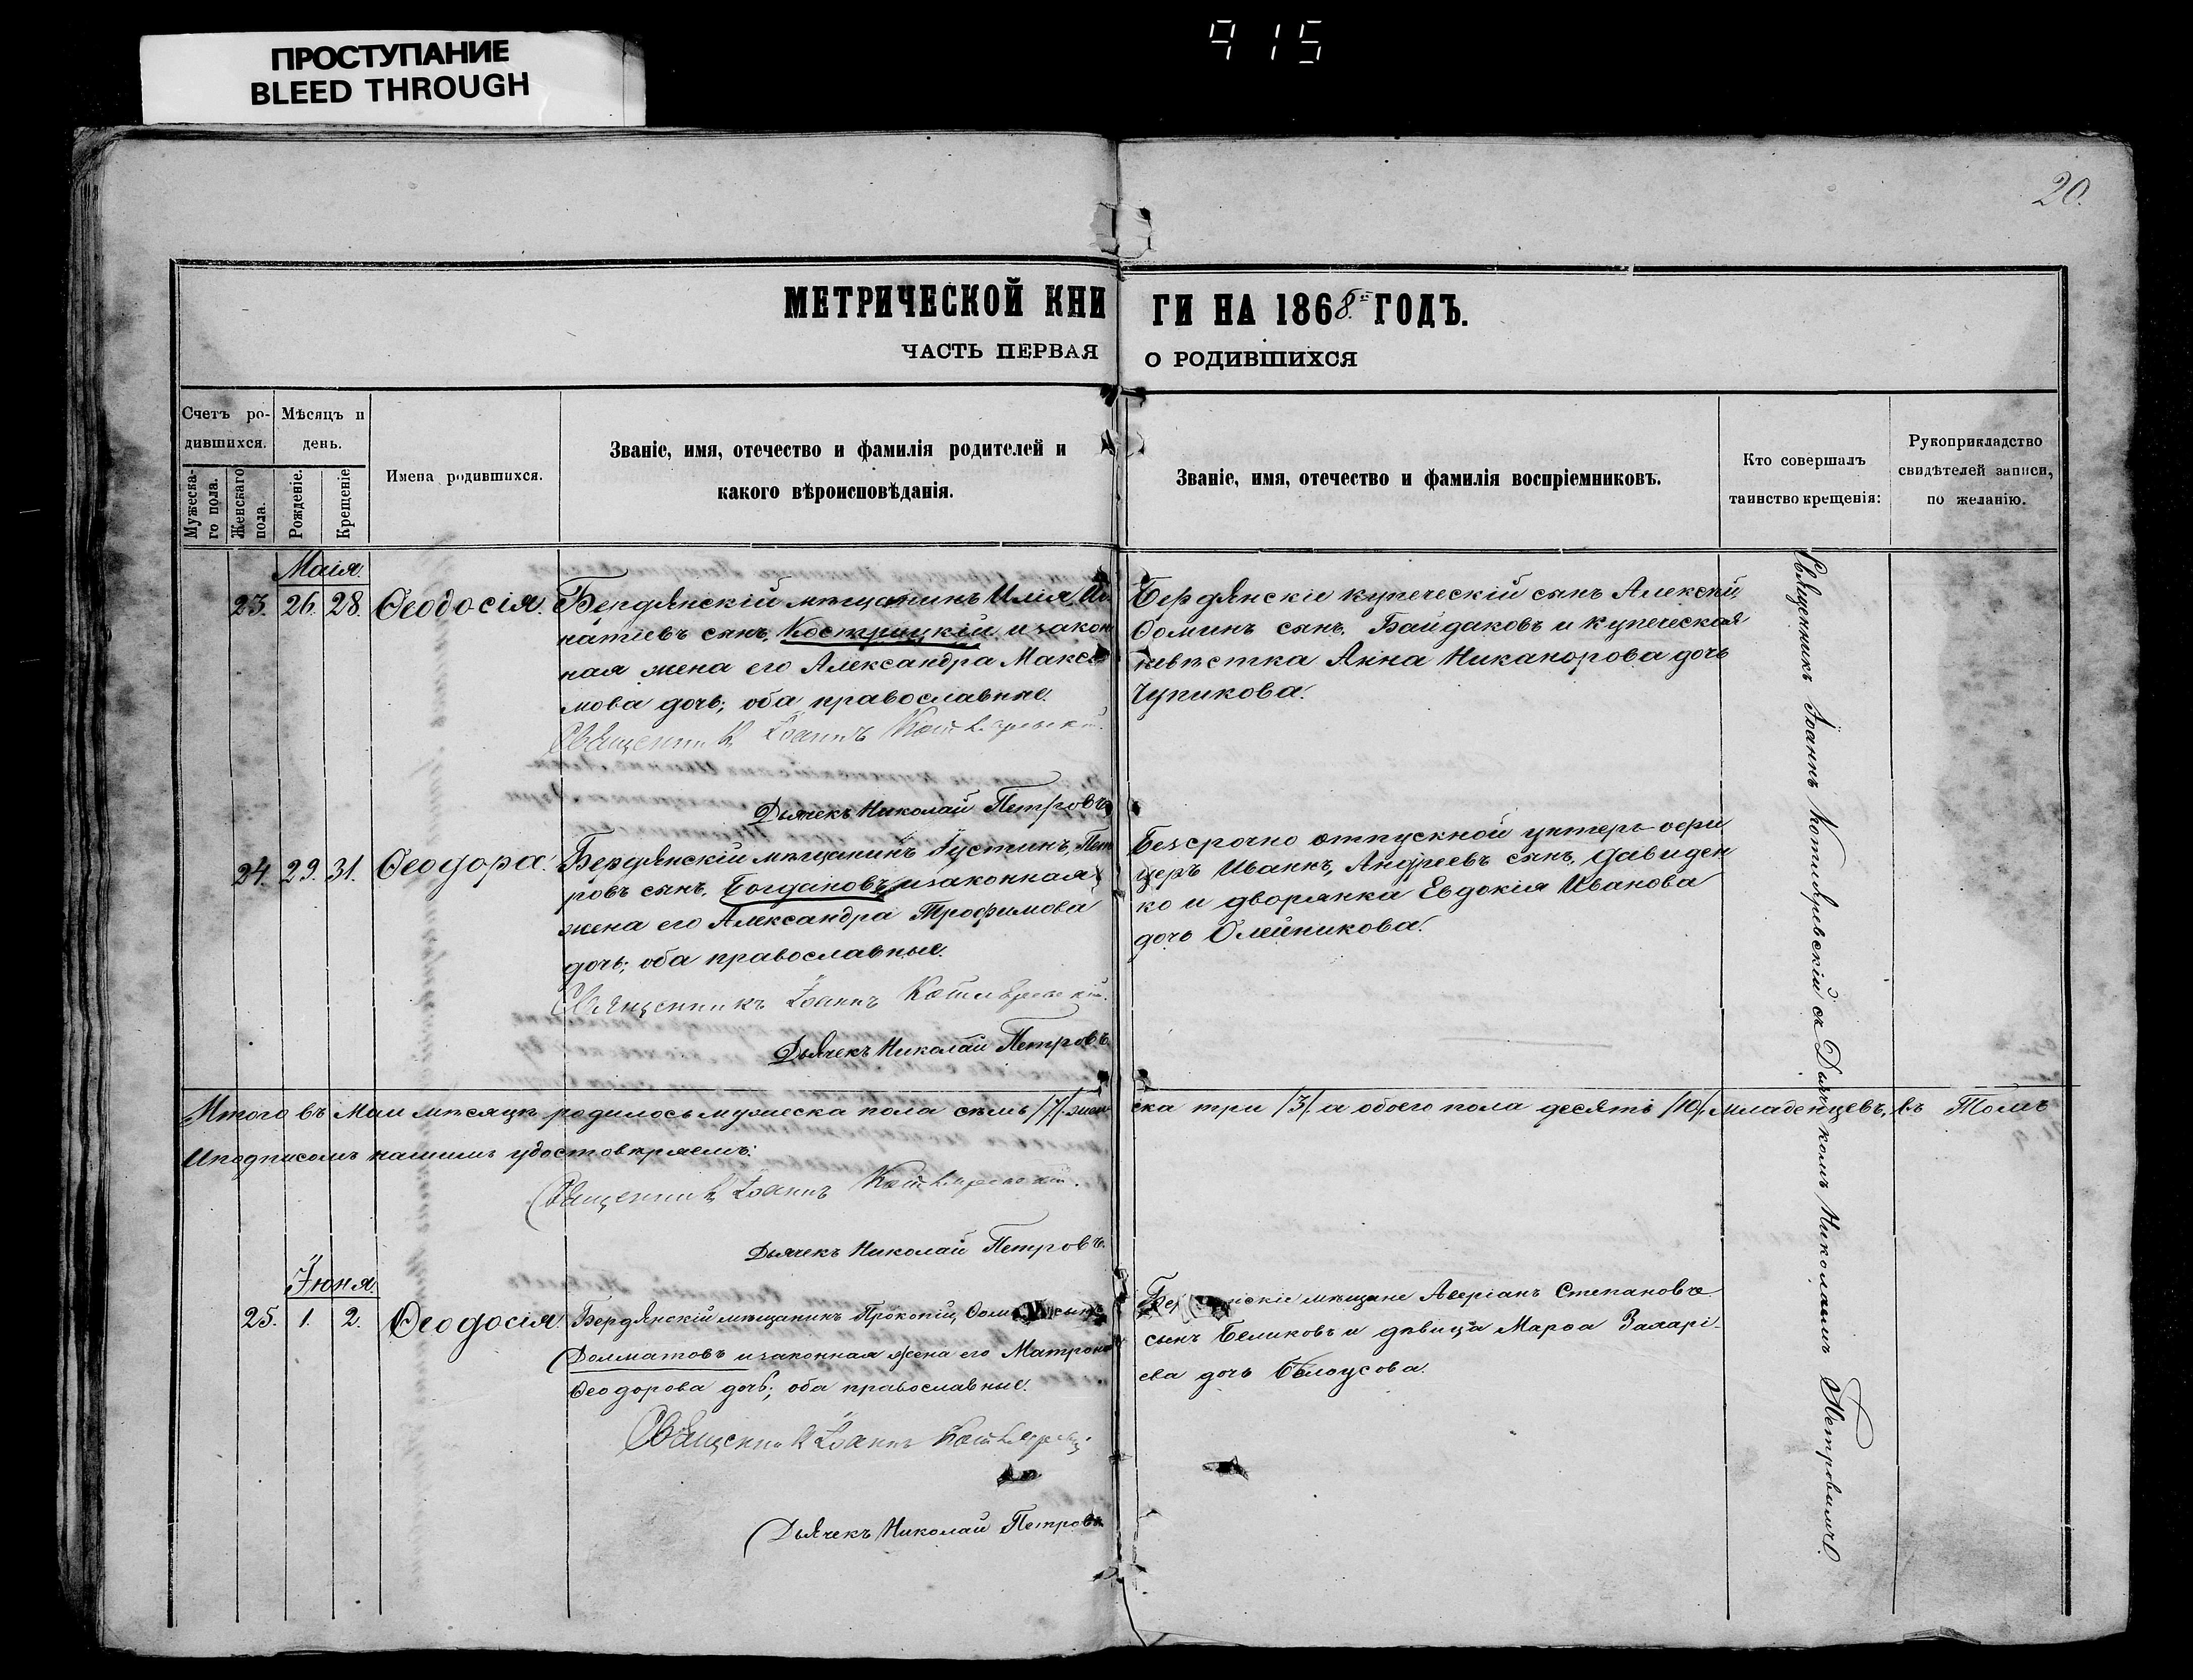 915
ПРОСТУПАНИЕ
BLEED THROUGH
20.
МЕТРИЧЕСКОЙ КНИГИ НА 1868й ГОДЪ.
ЧАСТЬ ПЕРВАЯ О РОДИВШИХСЯ
Счетъ родившихся.
Мужескаго пола.
Женскаго пола.
Мѣсяцъ и день.
Рожденіе.
Крещеніе
Имена родившихся.
Званіе, имя, отечество и фамилія родителей и
какого вѣроисповѣданія.
Званіе, имя, отечество и фамилія воспріемниковъ.
Кто совершалъ
таинство крещенія:
Рукоприкладство
свидѣтелей записи,
по желанію.
Маія.
23. 26. 28. Ѳеодосія.
Бердянскій мѣщанинъ Илія, Иг
натіевъ сынъ, Кострицкій и закон
ная жена его Александра Макси
мова дочь; оба православные.
Священникъ Іоаннъ Котляревскій.
Дьячекъ Николай Петровъ
Бердянскіе купеческій сынъ Алексій,
Ѳоминъ сынъ, Байдаковъ и купеческая
невѣстка Анна Никанорова дочь
Чупикова.
24. 29. 31. Ѳеодора.
Бердянскій мѣщанинъ Іустинъ, Пет
ровъ сынъ, Богдановъ и законная
жена его Александра Трофимова
дочь; оба православные.
Священникъ Іоаннъ Котляревскій.
Дьячекъ Николай Петровъ.
Безсрочно отпускной унтеръ-офи
церъ Иваннъ, Андреевъ сынъ, Давиден
ко и дворянка Евдокія Иванова
дочь Олейникова.
Итого въ Маи мѣсяцѣ родилось мужеска пола семь /7/ жен ска три /3/ а обоего пола десять /10/ младенцевъ, въ Томъ
И подписомъ нашимъ удостовѣряемъ:
Священникъ Іоаннъ Котляревскій.
Дьячекъ Николай Петровъ.
Іюня.
25. 1. 2. Ѳеодосія.
Бердянскій мѣщанинъ Прокопій, сынъ
Долматовъ и законная жена его Матрона
Ѳеодорова дочь; оба православные.
Священникъ Іоаннъ Котляревскій
Дьячекъ Николай Петровъ
мѣщане Аверіанъ Степановъ
сынъ Беликовъ и дѣвица Марѳа Захарі-
ева дочь Бѣлоусова.
Священникъ Іоаннъ Котляревскій съ Дьячкомъ Николаемъ Петровымъ.